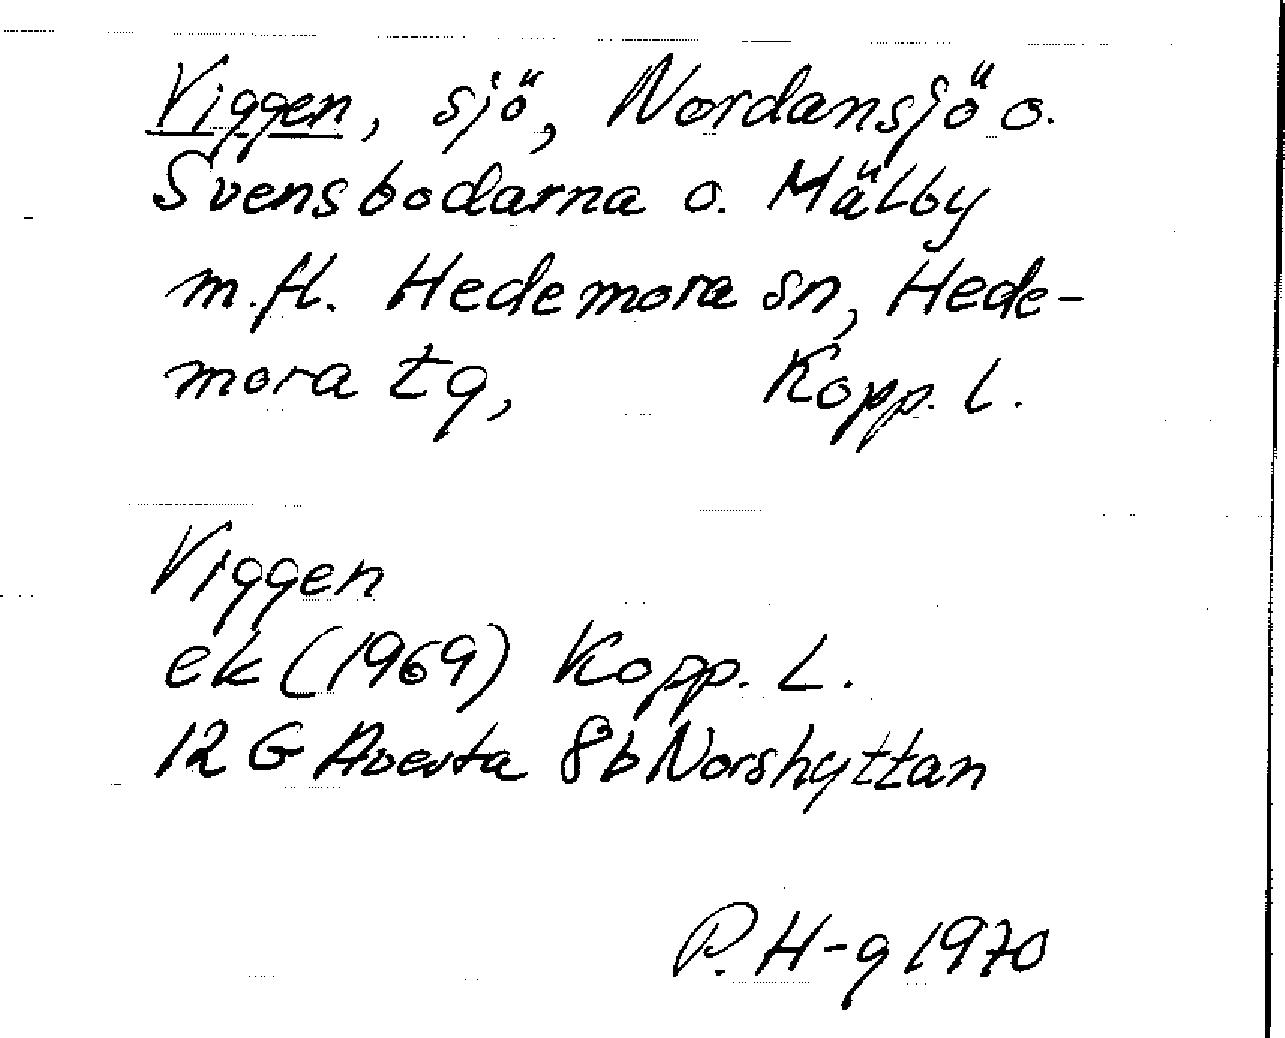 Viggen, sjö, Nordansjö o.
Svensbodarna o. Mälby
m.fl. Hedemora sn, Hede-
mora tg, Kopp. l.
Viggen
ek (1969) Kopp. L.
12 G Avesta 8b Norshyttan
P. H-g 1970